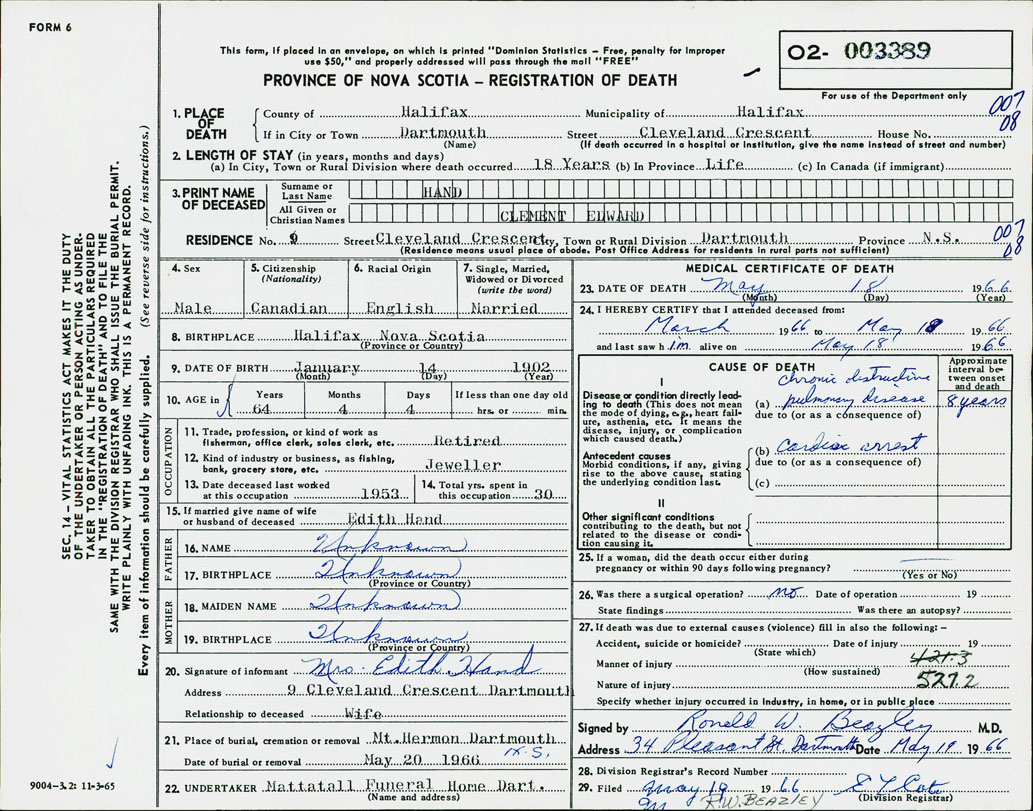 FORM 6
This form, if placed in an envelope, on which is printed "Dominion Statistics – Free, penalty for improper
use $50," and properly addressed will pass through the mail "FREE"
PROVINCE OF NOVA SCOTIA – REGISTRATION OF DEATH
02- 003389
For use of the Department only
007
08
1. PLACE OF DEATH
County of Halifax Municipality of Halifax
If in City or Town Dartmouth Street Cleveland Crescent House No.
(Name) (If death occurred in a hospital or institution, give the name instead of street and number)
2. LENGTH OF STAY (in years, months and days)
(a) In City, Town or Rural Division where death occurred 18 Years (b) In Province Life (c) In Canada (if immigrant)
3. PRINT NAME OF DECEASED
Surname or Last Name HAND
All Given or Christian Names CLEMENT EDWARD
RESIDENCE No. 9 Street Cleveland Crescent City, Town or Rural Division Dartmouth Province N.S.
007
08
(Residence means usual place of abode. Post Office Address for residents in rural parts not sufficient)
4. Sex
Male
5. Citizenship (Nationality)
Canadian
6. Racial Origin
English
7. Single, Married, Widowed or Divorced (write the word)
Married
8. BIRTHPLACE Halifax Nova Scotia
(Province or Country)
9. DATE OF BIRTH January 14 1902
(Month) (Day) (Year)
10. AGE in Years Months Days If less than one day old
64 4 4 hrs. or min.
OCCUPATION
11. Trade, profession, or kind of work as
fisherman, office clerk, sales clerk, etc. Retired
12. Kind of industry or business, as fishing,
bank, grocery store, etc. Jeweller
13. Date deceased last worked
at this occupation 1953
14. Total yrs. spent in
this occupation 30
15. If married give name of wife
or husband of deceased Edith Hand
FATHER
16. NAME Unknown
17. BIRTHPLACE Unknown
(Province or Country)
MOTHER
18. MAIDEN NAME Unknown
19. BIRTHPLACE Unknown
(Province or Country)
20. Signature of informant Mrs. Edith Hand
Address 9 Cleveland Crescent Dartmouth
Relationship to deceased Wife
21. Place of burial, cremation or removal Mt.Hermon Dartmouth
N.S.
Date of burial or removal May 20 1966
22. UNDERTAKER Mattatall Funeral Home Dart.
(Name and address)
MEDICAL CERTIFICATE OF DEATH
23. DATE OF DEATH May 18 1966
(Month) (Day) (Year)
24. I HEREBY CERTIFY that I attended deceased from:
March 1966 to May 18 1966
and last saw him alive on May 18 1966
CAUSE OF DEATH
Approximate interval between onset and death
I
Disease or condition directly leading to death (This does not mean
the mode of dying, e.g., heart failure, asthenia, etc. It means the
disease, injury, or complication
which caused death.)
chronic obstructive
(a) pulmonary disease 8 years
due to (or as a consequence of)
Antecedent causes
Morbid conditions, if any, giving
rise to the above cause, stating
the underlying condition last.
(b) Cardiac arrest
due to (or as a consequence of)
(c)
II
Other significant conditions
contributing to the death, but not
related to the disease or condition causing it.
25. If a woman, did the death occur either during
pregnancy or within 90 days following pregnancy?
(Yes or No)
26. Was there a surgical operation? no Date of operation 19
State findings Was there an autopsy?
27. If death was due to external causes (violence) fill in also the following:–
Accident, suicide or homicide? Date of injury 19
(State which)
421.3
Manner of injury
(How sustained)
527.2
Nature of injury
Specify whether injury occurred in industry, in home, or in public place
Signed by Ronald W. Beazley M.D.
Address 34 Pleasant St. Dartmouth Date May 19 1966
28. Division Registrar's Record Number
29. Filed May 19 1966
(Division Registrar)
R.W. BEAZLEY
SEC. 14 – VITAL STATISTICS ACT MAKES IT THE DUTY
OF THE UNDERTAKER OR PERSON ACTING AS UNDER-
TAKER TO OBTAIN ALL THE PARTICULARS REQUIRED
IN THE "REGISTRATION OF DEATH" AND TO FILE THE
SAME WITH THE DIVISION REGISTRAR WHO SHALL ISSUE THE BURIAL PERMIT.
WRITE PLAINLY WITH UNFADING INK. THIS IS A PERMANENT RECORD.
Every item of information should be carefully supplied. (See reverse side for instructions.)
9004-3.2: 11-3-65